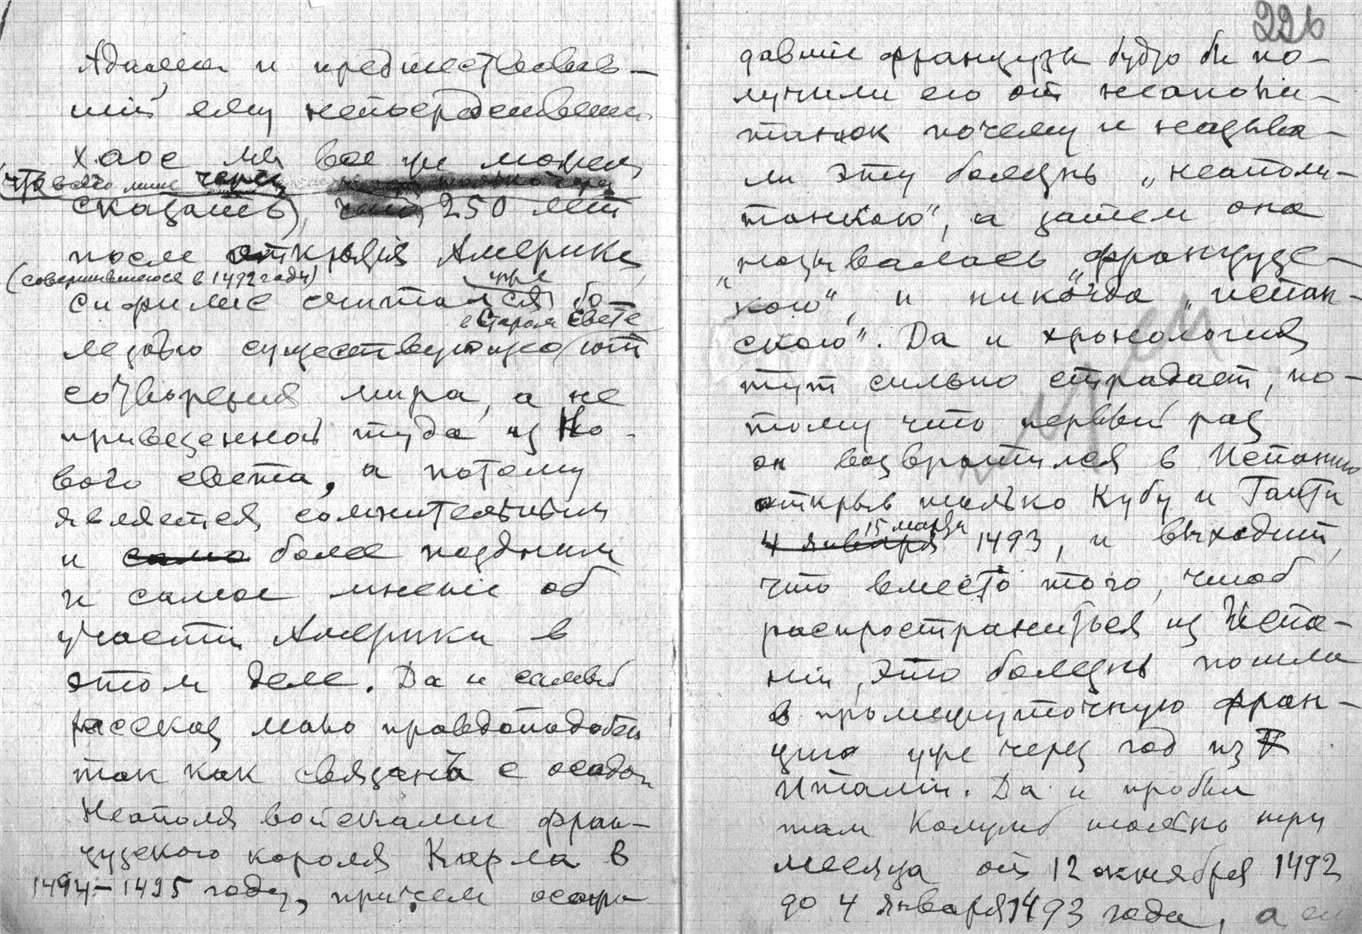 Адама и предшествовав-
ший ему непосредственно
хаос мы все же можем
что всего лишь через
сказать), 250 лет
после открытія Америки,
(совершившегося в 1492 году)
сифилис считался уже бо-
в Старом Свете
лезнью существующею от
сотворения мира, а не
привезенной туда из Но-
вого света, а потому
является сомнительным
и более поздним
и самое мненіе об
участіи Америки в
этом деле. Да и самый
рассказ мало правдоподобен
так как связан с осадой
Неаполя войсками фран-
цузского короля Карла в
1494-1495 году, причем осаж-
226
давшіе французы будто бы по-
лучили его от неаполи-
танок почему и называ-
ли эту болезнь „неаполи-
танскою", а затем она
называлась „француз-
„скою", и никогда „испан-
скою". Да и хронология
тут сильно страдает, по-
тому что первый раз
он возвратился в Испанию
открыв только Кубу и Гаити
15 марта
4 января 1493, и выходит,
что вместо того, чтоб
распространиться из Испа-
ніи, эта болезнь пошла
в промежуточную Фран-
цию уже через год из
Италіи. Да и пробыл
там Колумб только три
месяца от 12 октября 1492
до 4 января 1493 года, а